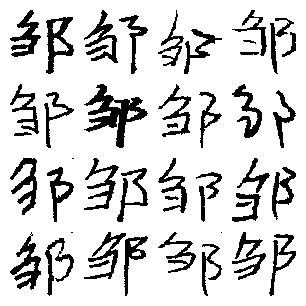 邹邹邹邹
邹邹邹邹
邹邹邹邹
邹邹邹邹